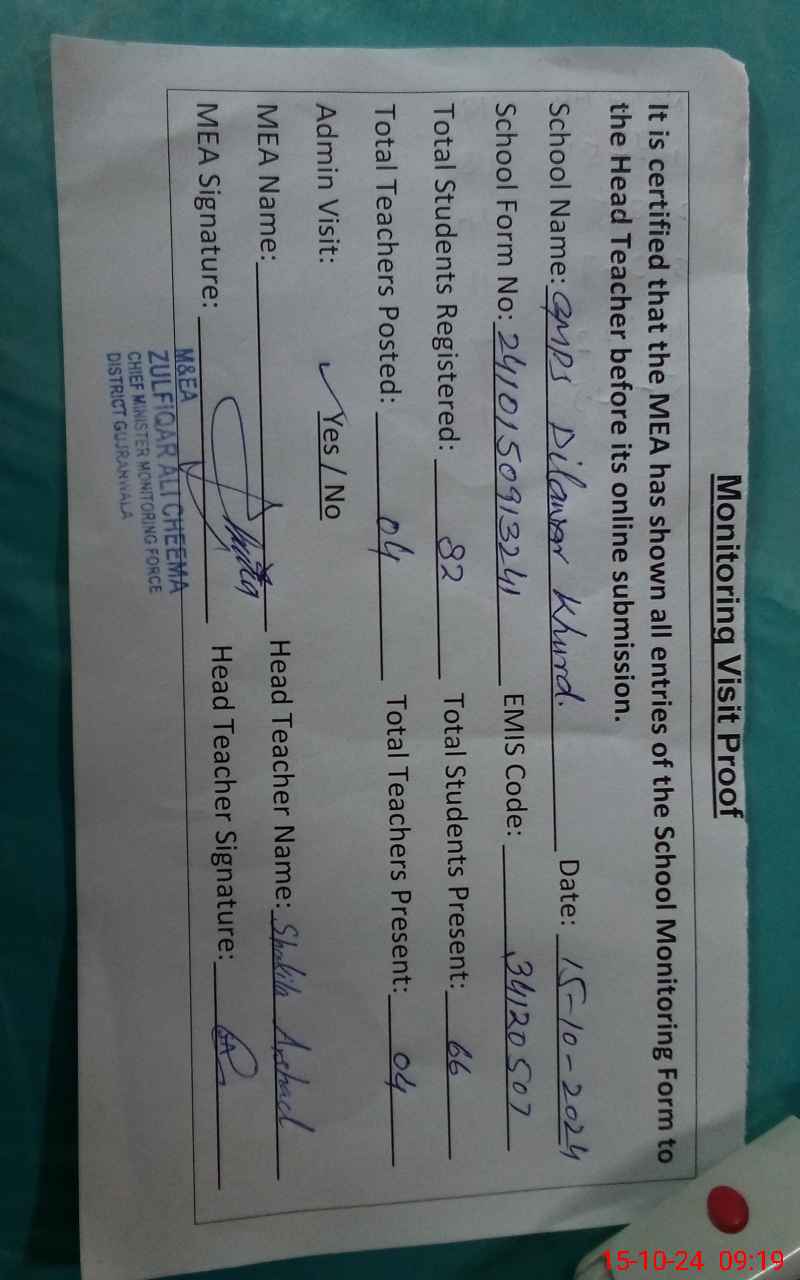 Monitoring Visit Proof
It is certified that the MEA has shown all entries of the School Monitoring Form to
the Head Teacher before its online submission.
School Name: GMPS Dilawar Khurd. Date: 15-10-2024
School Form No: 2410150913241 EMIS Code: 34120507
Total Students Registered: 82 Total Students Present: 66
Total Teachers Posted: 04 Total Teachers Present: 04
Admin Visit: ✓ Yes / No
MEA Name: Head Teacher Name: Shakila Arshad
MEA Signature: Head Teacher Signature: SA
M&EA
ZULFIQAR ALI CHEEMA
CHIEF MINISTER MONITORING FORCE
DISTRICT GUJRANWALA
15-10-24 09:19